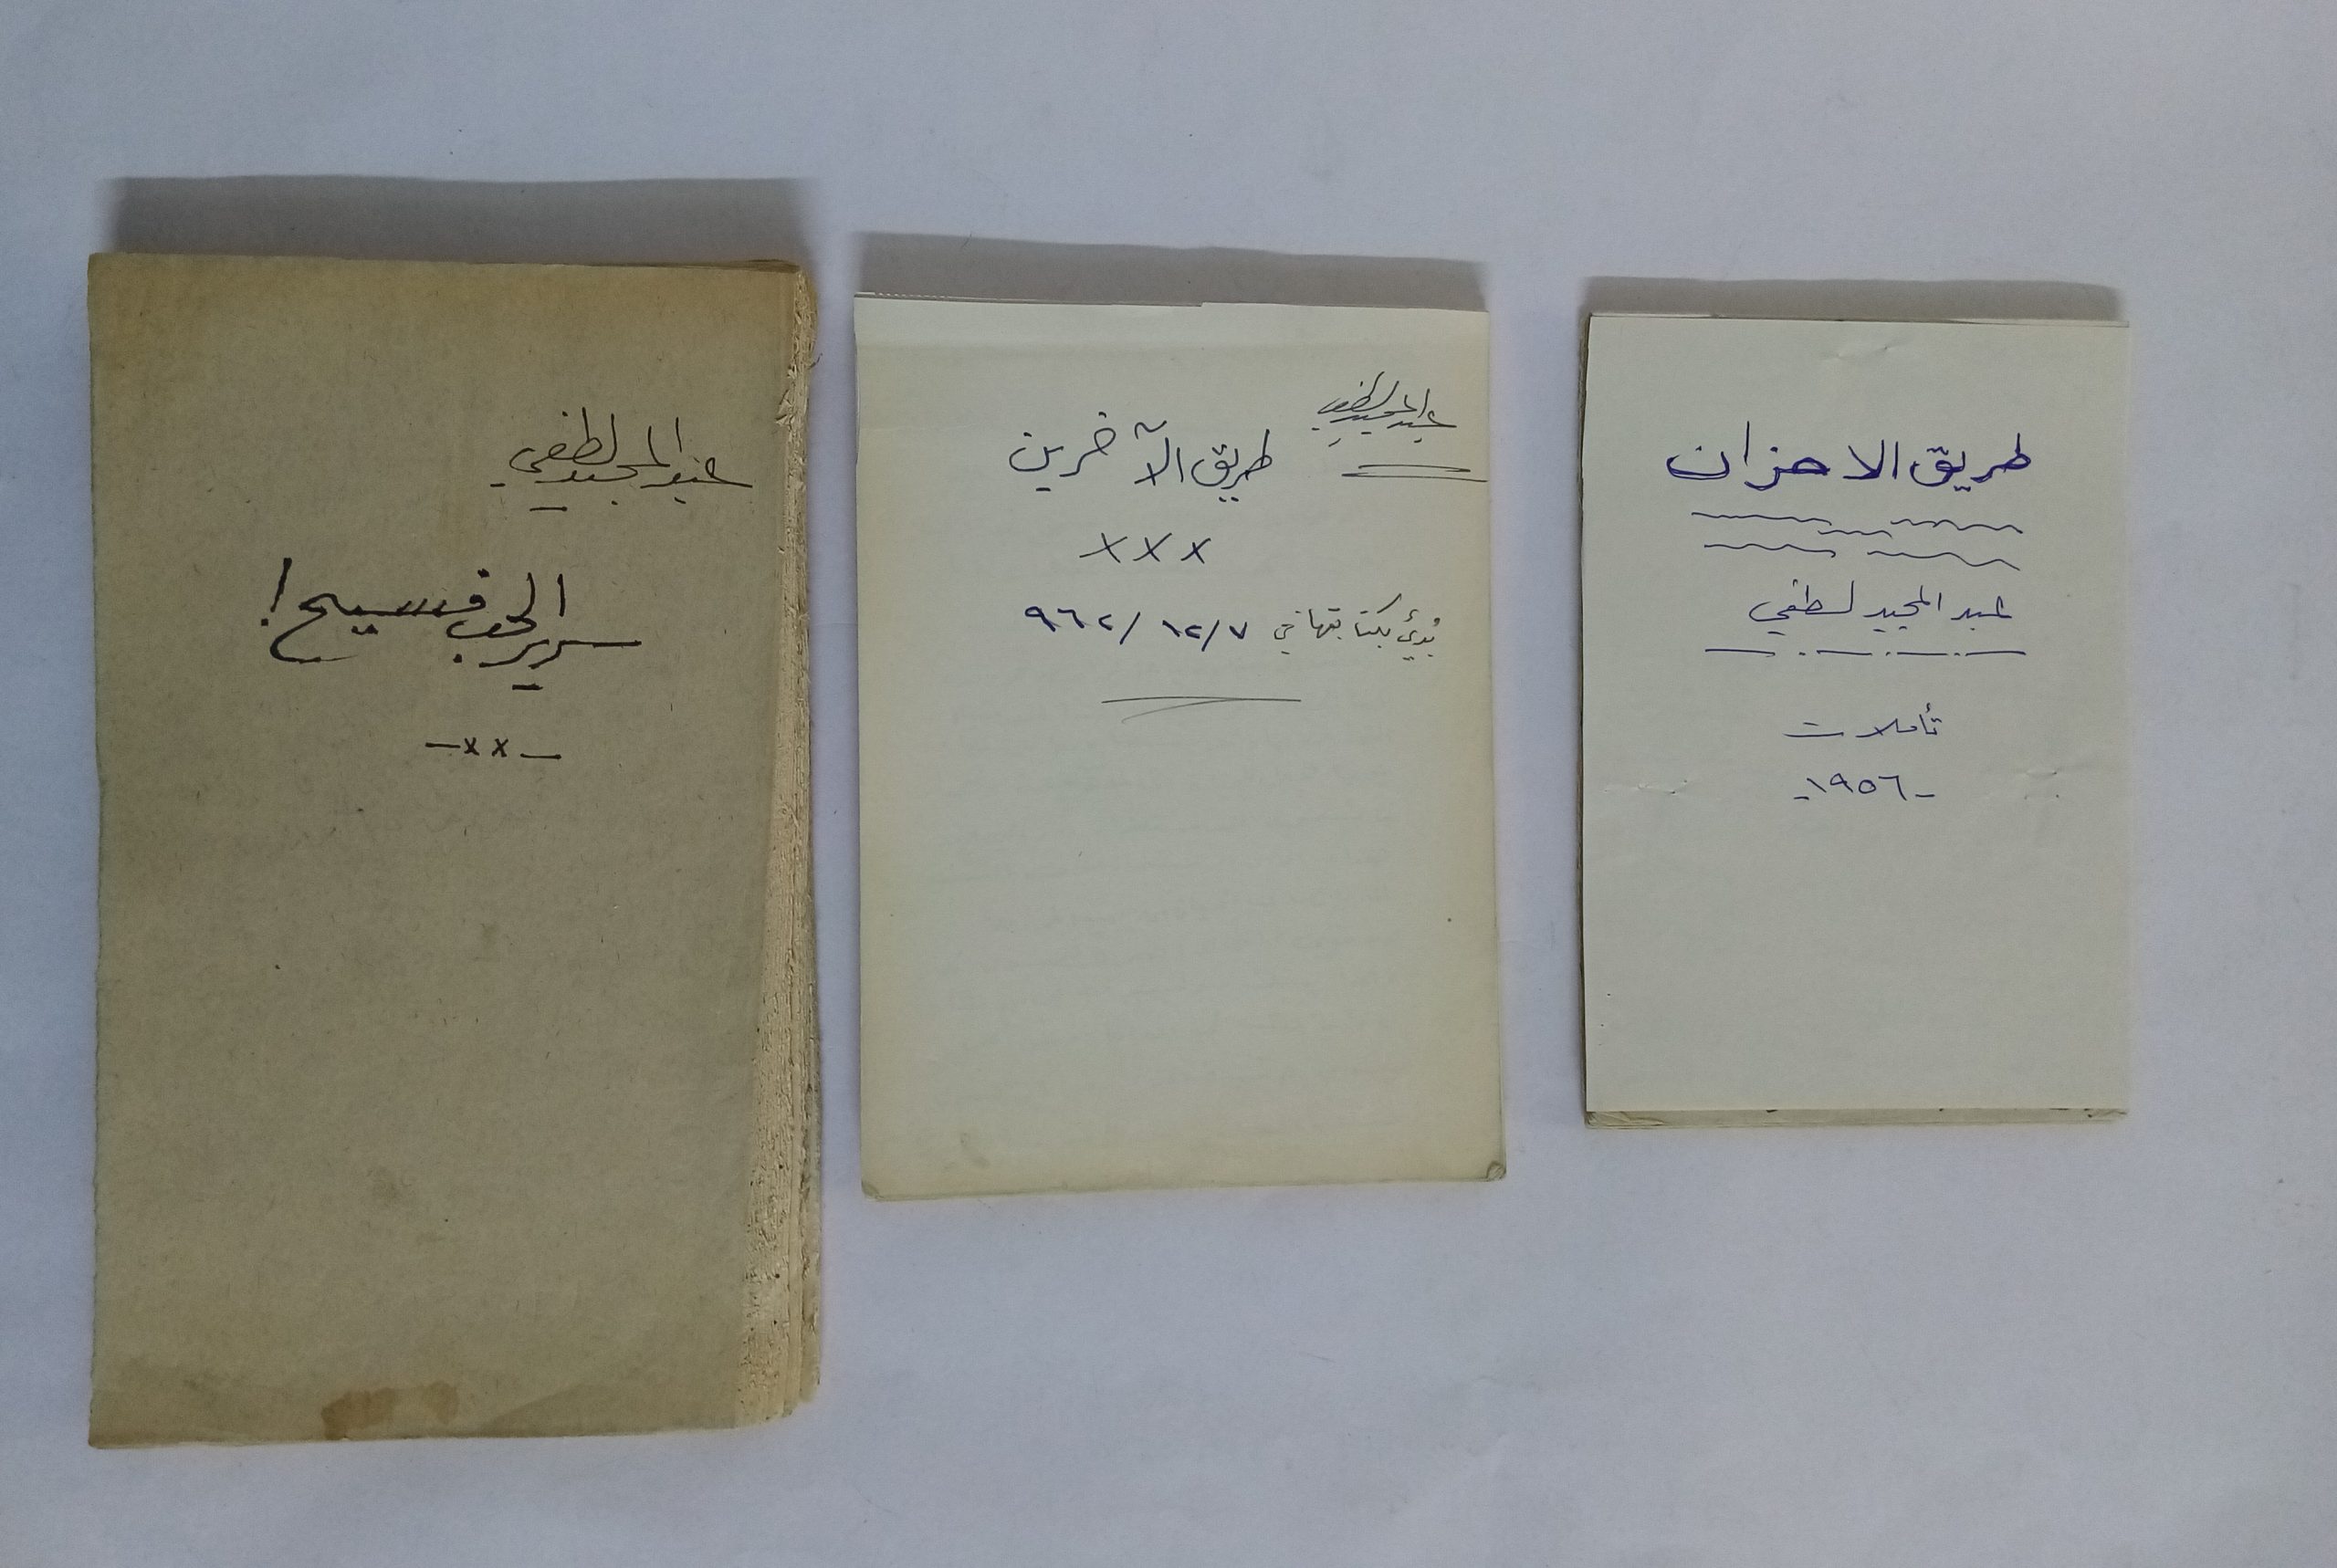 عبدالمجيد لطفي
سرير الحب فسيح!
—××—
عبدالمجيد لطفي
طريق الآخرين
×××
بُدئ بكتابتها في ٧/١٢/٩٦٢
طريق الاحزان
عبد المجيد لطفي
تأملات
-١٩٥٦-